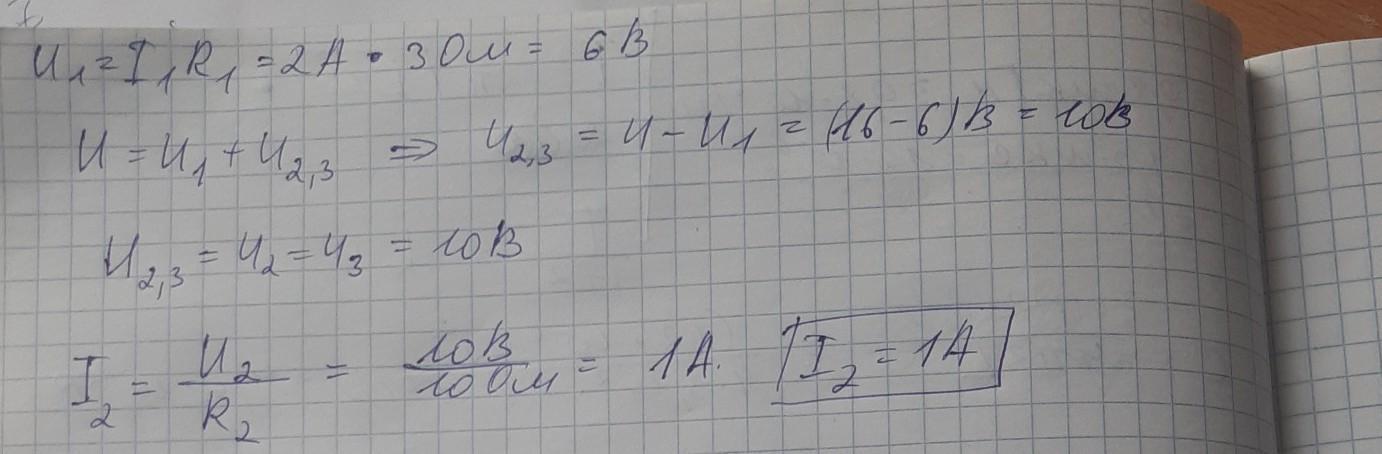 U₁ = I₁R₁ = 2А · 3 Ом = 6 В
U = U₁ + U₂,₃ ⇒ U₂,₃ = U − U₁ = (16−6)В = 10В
U₂,₃ = U₂ = U₃ = 10В
I₂ = U₂/R₂ = 10В/10 Ом = 1А. I₂ = 1А